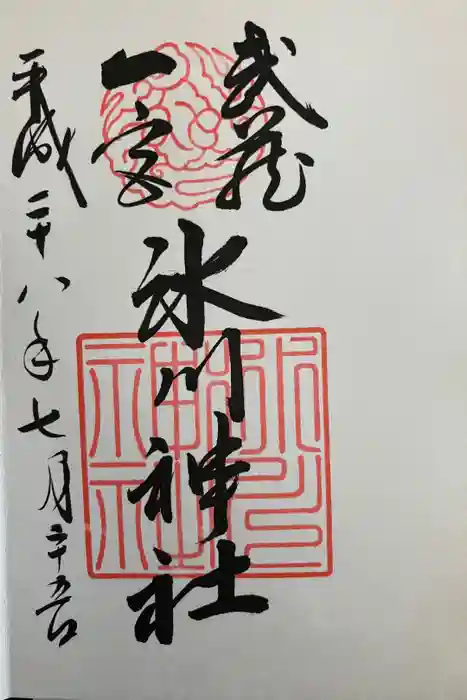 武蔵
一宮
氷川神社
平成二十八年七月二十五日
氷川神社